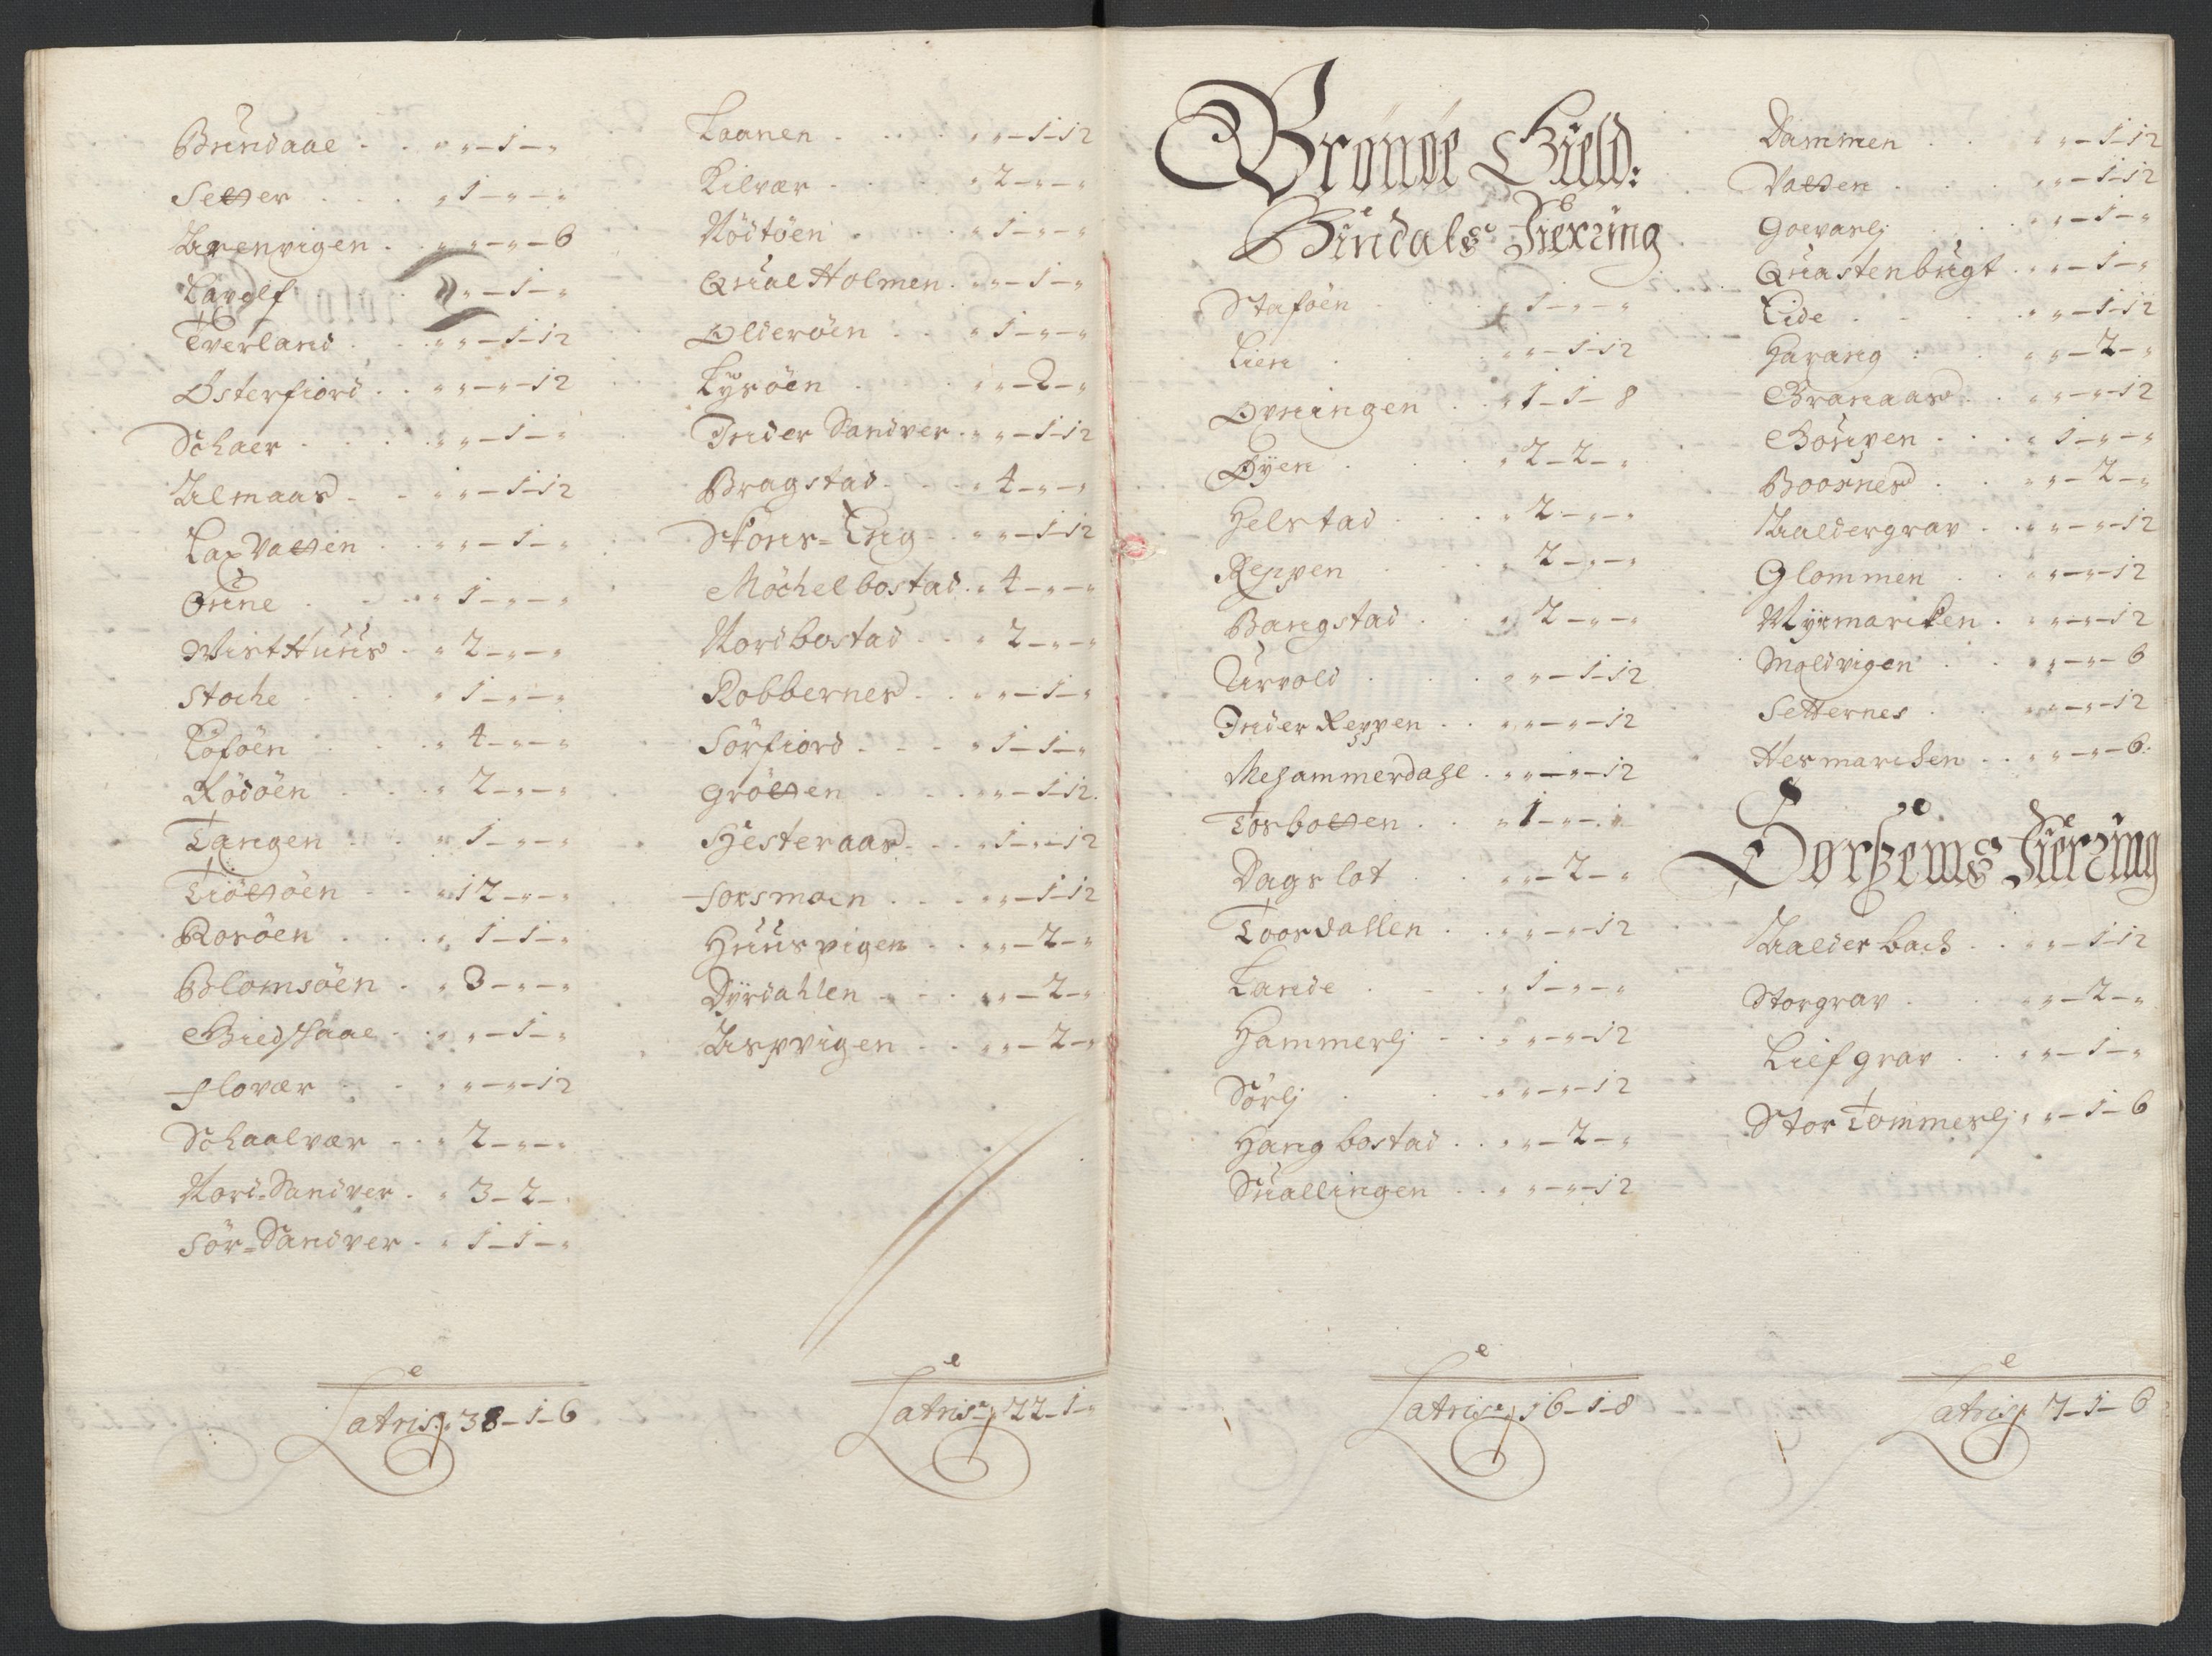 Brundaal . . " " – 1 – "
Setter . . . " 1 – " – "
Urenvigen . . " " – " – 6
Lavolf . " " – 1 – "
Tverland . . " " – 1-12
Østerfiord . . " " – " – 12
Schaer . . . " " – 1 – "
Ulmaas . . " " – 1-12
Lax Vatten . . " " – 1 – "
Oune . . . " 1 – " – "
Wist Huus . " 2 – " – "
Stoche . . . " 1 – " – "
Loföen . . . " 4 – " – "
Rödöen . . . " 2 – " – "
Tangen . . . " 1 – " – "
Tiöttöen . . " 12 – " – "
Rosöen . . . " 1 – 1 – "
Blomsöen . " 3 – " – "
Giedshaal . . " " – 1 – "
Flovær . . . " " – " – 12
Schaalvær . . " 2 – " – "
Nord-Sandver . " 3 – 2 – "
Sör-Sandver . " 1 – 1 – "
Latris " 38 – 1 – 6
Laanen . . . . " " – 1-12
Kilvær . . . " 2 – " – "
Nödtöen . . . " 1 – " – "
Qual Holmen . " " – 1 – "
Olderöen . . " 1 – " – "
Lysöen . . . " " – 2 – "
Inder Sandver . " " – 1-12
Bragstad . . . " 4 – " – "
Stous-Eng . . " " – 1-12
Möchelbostad . " 4 – " – "
Nordbostad . . " 2 – " – "
Robbernes . . " " – 1 – "
Sörfiord . . . " 1 – 1 – "
Grötten . . . " " – 1-12
Hesteraas . . . " 1 – " – 12
Forsmoen . . . " " – 1-12
Huusvigen . . " " – 2 – "
Dyrdahlen . . . " " – 2 – "
Uspvigen . . " " – 2 – "
Latris 22 – 1 – "
Brönöe Gield:
Bindals Fierring
Staföen . . . " 1 – " – "
Lien . . . " " – 1-12
Ovningen . . " 1 – 1 – 8
Øyen . . . " 2 – 2 – "
Helstad . . . " 2 – " – "
Reppen . . . " 2 – " – "
Bangstad . . " 2 – " – "
Urvold . . . " " – 1-12
Inder Reppen . . " " – " – 12
Mehammerdahl . " " – " – 12
Tosbotten . . " 1 – " – "
Dagslot . . " " – 2 – "
Toosdallen . . " " – " – 12
Lande . . . " 1 – " – "
Hammerlj . . " " – " – 12
Sörlj . . . " " – " – 12
Hangbostad . . " " – 2 – "
Suallingen . . " " – " – 12
Latris 16 – 1 – 8
Dammen . . " " – 1-12
Vatten . . . " " – 1-12
Goevarlj . . " " – 1 – "
Quastenbugt . " " – 1 – "
Eide . . . " " – 1-12
Harang . . " " – 2 – "
Granaas . . " " – " – 12
Goupen . . . " 1 – " – "
Boosnes . . " " – 2 – "
Kaldergrav . . " " – " – 12
Glommen . . " " – " – 12
Myrmarcken . " " – " – 12
Moldvigen . . " " – " – 6
Setternes . . " " – " – 12
Hesmarchen . . " " – " – 6:
Sorhems Fierring
Kalderback . . " " – 1-12
Storgrav . . " " – 2 – "
Liefgrav . . " " – 1 – "
Stor Tommerlj " " – 1 – 6
Latris 7 – 1 – 6